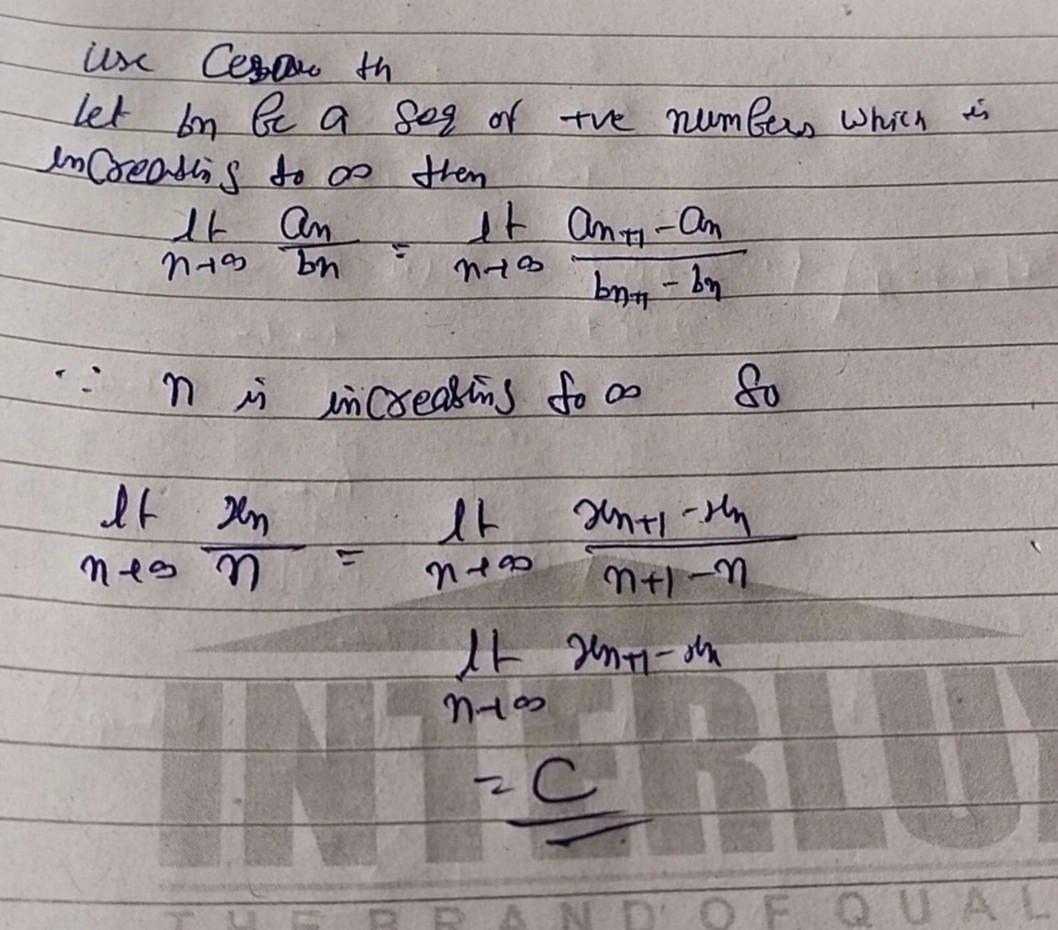 Use Cesaro th
Let bn be a seq of +ve numbers which is
increasing to ∞ then
lt n→∞ an/bn = lt n→∞ (an+1 - an)/(bn+1 - bn)
∵ n is increasing to ∞ so
lt n→∞ xn/n = lt n→∞ (xn+1 - xn)/(n+1 - n)
lt n→∞ xn+1 - xn
= C
INTERLU
THE BRAND OF QUAL